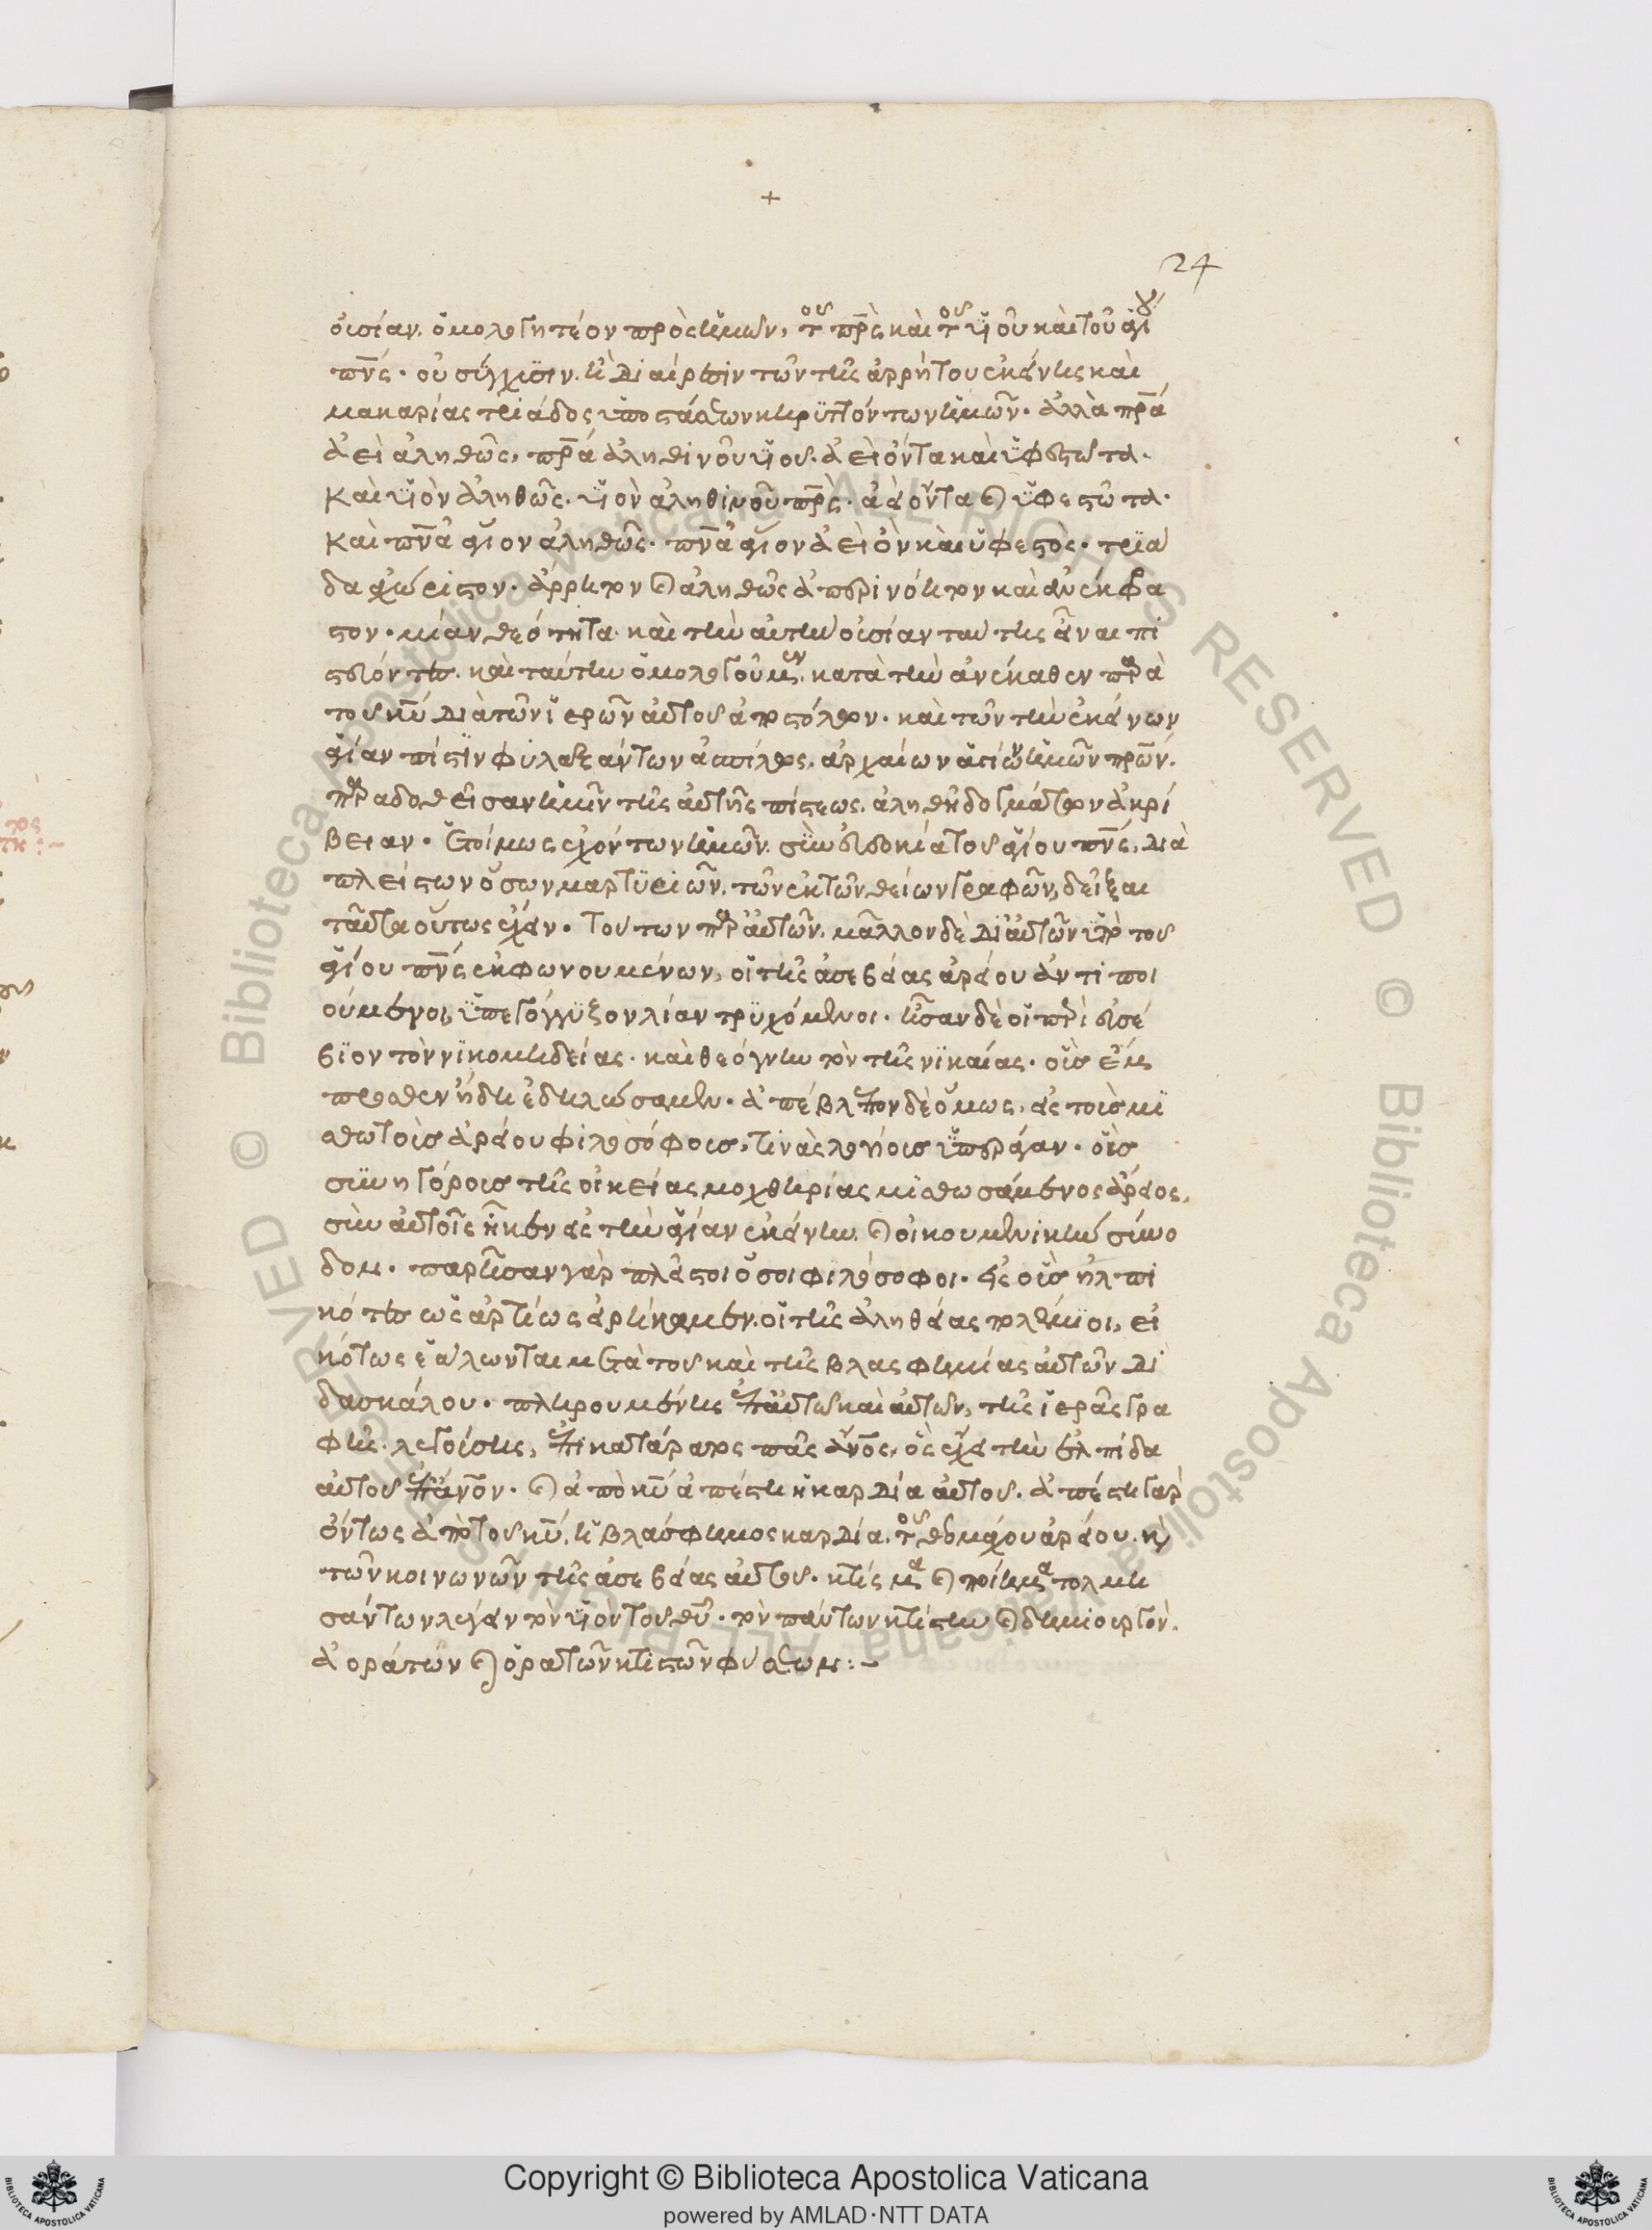 24
οὐσίαν. ὁμολογητέον πρὸς ἡμῶν, τοῦ πρ̅ς καὶ τοῦ υἱοῦ καὶ τοῦ ἁγίου
πν̅ς· οὐ σύγχυσιν. ἢ διαίρεσιν τῶν τῆς ἀρρήτου ἐκείνης καὶ
μακαρίας τριάδος ὑποστάσεων κηρυττόντων ἡμῶν· ἀλλὰ πρ̅α
ἀεὶ ἀληθῶς, πρ̅α ἀληθινοῦ υἱοῦ. ἀεὶ ὄντα καὶ ὑφεστῶτα·
Καὶ υἱὸν ἀληθῶς· υἱὸν ἀληθινοῦ πρ̅ς· ἀεὶ ὄντα καὶ ὑφεστῶτα·
Καὶ πν̅α ἅγιον ἀληθῶς· πν̅α ἅγιον ἀεὶ ὂν καὶ ὑφεστὸς· τριά
δα ἀχώριστον· ἄρρητον καὶ ἀληθῶς ἀπερινόητον καὶ ἀνέκφρα
στον· μίαν θεότητα καὶ τὴν αὐτὴν οὐσίαν ταύτης εἶναι πι
στεύοντες. καὶ ταύτην ὁμολογοῦμεν. κατὰ τὴν ἀνέκαθεν παρὰ
τοῦ κυ̅ διὰ τῶν ἱερῶν αὐτοῦ ἀποστόλων· καὶ τῶν τὴν ἐκείνων
ἁγίαν πίστιν φυλαξάντων ἀσινῶς. ἀρχαίων ἁγίων ἡμῶν πρ̅ων.
παραδοθεῖσαν ἡμῖν τῆς αὐτῆς πίστεως. ἀληθῆ δογμάτων ἀκρί
βειαν· ἑτοίμως ἐχόντων ἡμῶν. σὺν εὐδοκίᾳ τοῦ ἁγίου πν̅ς, διὰ
πλείστων ὅσων μαρτυριῶν. τῶν ἐκ τῶν θείων γραφῶν, δεῖξαι
ταῦτα οὕτως ἔχειν· Τούτων παρ' αὐτῶν. μᾶλλον δὲ δι' αὐτῶν ὑπὸ τοῦ
ἁγίου πν̅ς ἐκφωνουμένων, οἱ τῆς ἀσεβείας ἀρείου ἀντιποι
ούμενοι, ὑπεγόγγυζον λίαν τρυχόμενοι· ἦσαν δὲ οἱ περὶ εὐσέ
βιον τὸν νικομηδείας· καὶ θεόγνιν τὸν τῆς νικαίας· οὓς ἔμ
προσθεν ἤδη ἐδηλώσαμεν· ἀπέβλεπον δὲ ὅμως, εἰς τοὺς μι
σθωτοὺς ἀρείου φιλοσόφους, τινὰς λογίους ὑπάρχειν· οὓς
συνηγόρους τῆς οἰκείας μοχθηρίας μισθωσάμενος ἄρειος,
σὺν αὐτοῖς ἧκεν εἰς τὴν ἁγίαν ἐκείνην καὶ οἰκουμενικὴν σύνο
δον· παρῆσαν γὰρ πλεῖστοι ὅσοι φιλόσοφοι· εἰς οὓς ἠλπι
κότες ὡς ἀρτίως εἰρήκαμεν. οἱ τῆς ἀληθείας πολέμιοι, εἰ
κότως ἑάλωνται μετὰ τοῦ καὶ τῆς βλασφημίας αὐτῶν δι
δασκάλου· πληρουμένης ἐπ' αὐτῷ καὶ αὐτῶν, τῆς ἱερᾶς γρα
φῆς λεγούσης, ἐπικατάρατος πᾶς ἄνο̅ς, ὃς ἔχει τὴν ἐλπίδα
αὐτοῦ ἐπ' ἄνο̅ν· καὶ ἀπὸ κυ̅ ἀπέστη ἡ καρδία αὐτοῦ. ἀπέστη γὰρ
ὄντως ἀπὸ τοῦ κυ̅, ἡ βλάσφημος καρδία. τοῦ θεομάχου ἀρείου. καὶ
τῶν κοινωνῶν τῆς ἀσεβείας αὐτοῦ. κτίσμα καὶ ποίημα τολμη
σάντων λέγειν τὸν υἱὸν τοῦ θυ̅· τὸν πάντων κτίστην καὶ δημιουργὸν.
ἀοράτων καὶ ὁρατῶν κτιστῶν φύσεων:-
Copyright © Biblioteca Apostolica Vaticana
powered by AMLAD·NTT DATA